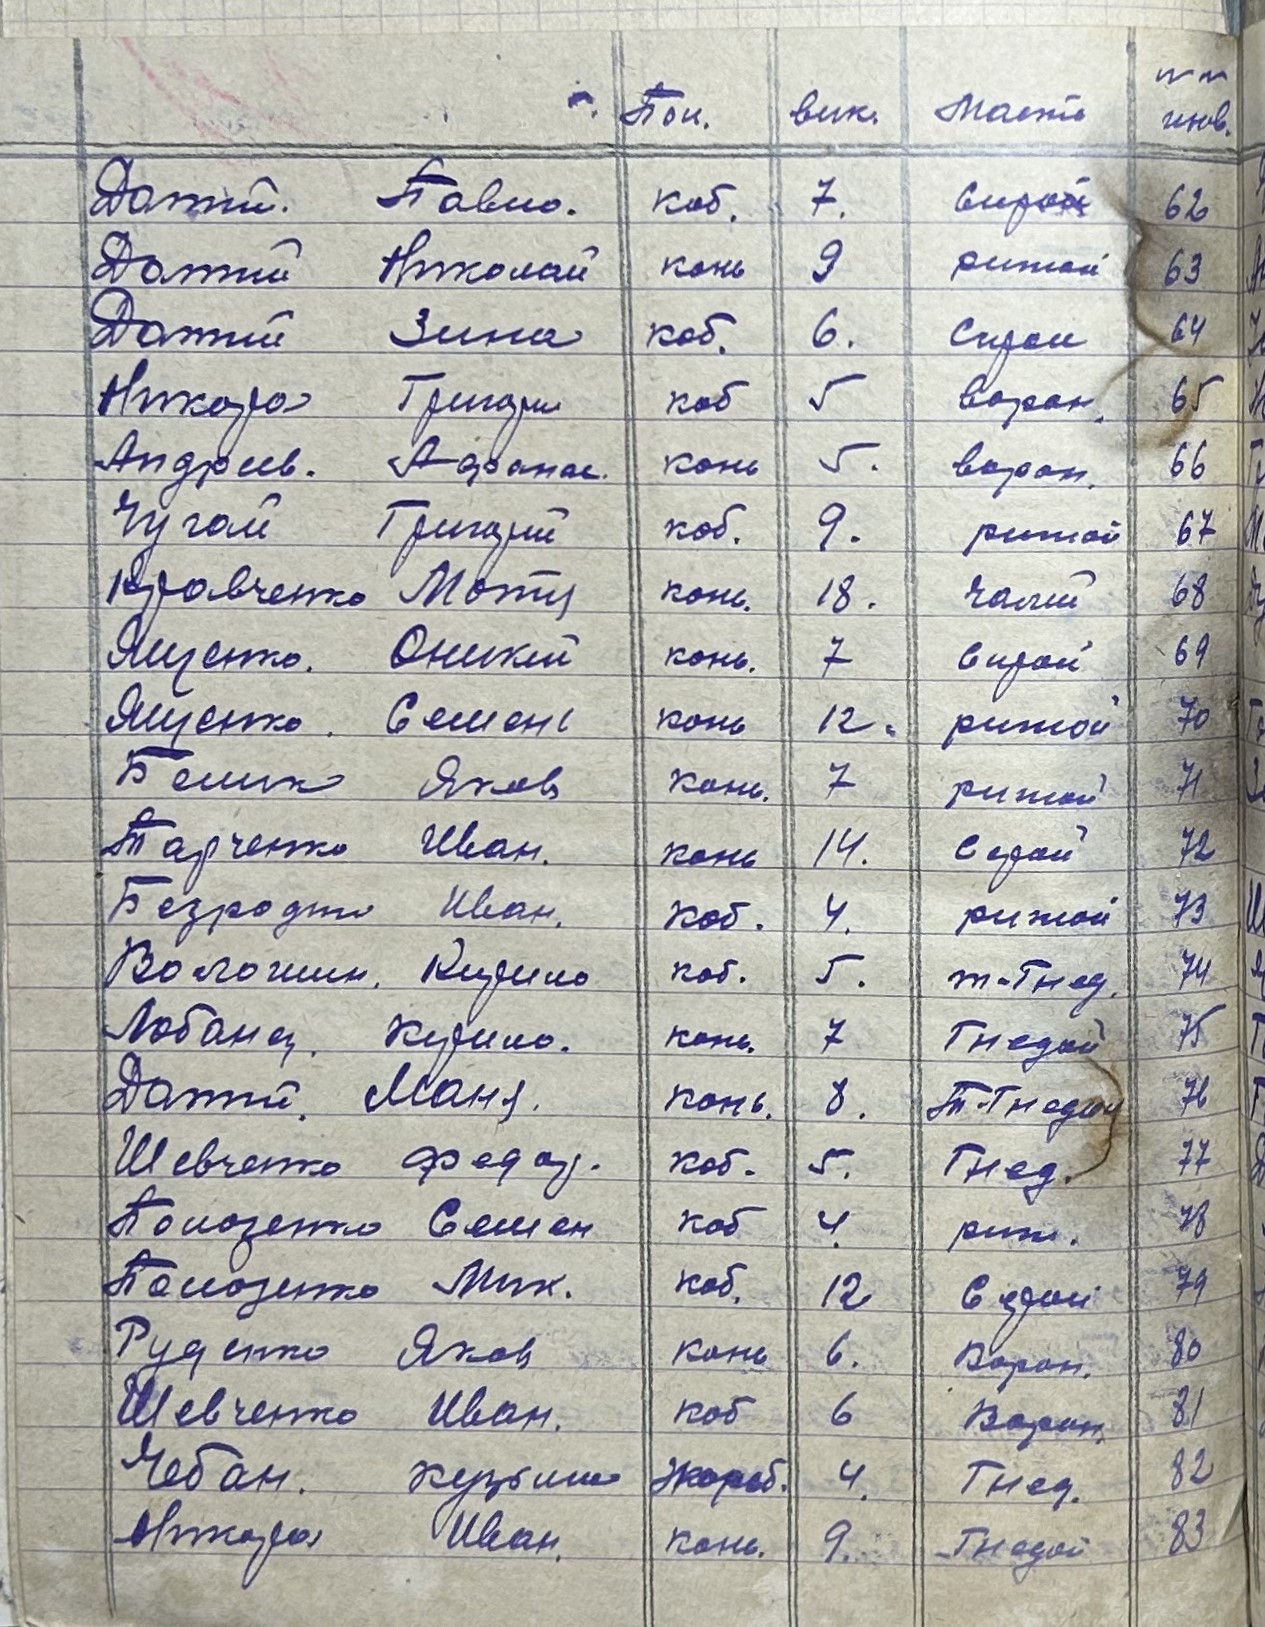 Пол. вик. Масть инв.
Датий. Павло. коб. 7. Сирой 62
Датий Николай конь 9 рижой 63
Датий Зина коб. 6. Сирои 64
Никора Григори коб 5 Воран. 65
Андреев. Афанас. конь 5. Воран. 66
Чугай Григорий коб. 9. рижой 67
Кравченко Мотя конь. 18. Чалий 68
Ященко. Оникий конь. 7 Сирой 69
Ященко. Семен конь 12. рижой 70
Белик Яков конь. 7 рижой 71
Тарченко Иван. конь 14. Серой 72
Безродню Иван. Коб. 4. рижой 73
Волошин. Кирило коб. 5. т-Гнед. 74
Лобанец. Кирило. конь. 7 Гнедой 75
Датий. Маня. конь. 8. Т-Гнедой 76
Шевченко Федор. коб. 5. Гнед. 77
Полозенко Семен коб 4. риж. 78
Полозенко Мик. коб. 12 Серой 79
Руденко Яков конь 6. Воран. 80
Шевченко Иван. коб 6 Воран. 81
Чебан. Кузьма Жереб. 4. Гнед. 82
Никора Иван. конь. 9. Гнедой 83